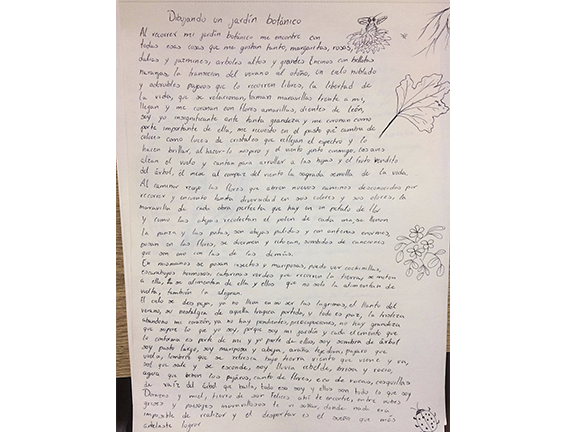 Dibujando un jardín botánico
Al recorrer mi jardín botánico me encontre con
todas esas cosas que me gustan tanto, margaritas, rosas,
dalias y jazmines, arboles altos y grandes Encinos con bellotas
naranjas, la transicion del verano al otoño, un cielo nublado
y adorables pajaros que lo recorren libres, la libertad de
la vida, que se relacionan, forman maravillas frente a mi,
llegan y me coronan con flores amarillas, dientes de león,
soy yo insignificante ante tanta grandeza y me coronan como
parte importante de ella, me recuesto en el pasto que cambia de
colores como luces de cristales que reflejan el espectro y lo
hacen brillar, al hacerlo respiro y el viento junto conmigo, las aves
alzan el vuelo y cantan para arrullar a las hojas y el fruto bendito
del árbol, el mece al compas del viento la sagrada semilla de la vida.
Al caminar recojo las flores que abren nuevos caminos desconocidos por
recorrer y encuentro tanta diversidad en sus colores y sus olores, la
maravilla de cada obra perfecta que hay en un petalo de flor
y como las abejas recolectan el polen de cada una, se llenan
la panza y las patas, son abejas pulidas y con antenas enormes,
posan en las flores, se duermen y retozan, zumbidos de canciones
que son uno con las de las demás.
En mis manos se posan insectos y mariposas, puedo ver cochinillas,
escarabajos hermosos, catarinas verdes que recorren la tierra, se meten
a ella, se alimentan de ella y ellos que no solo la alimentan de
vuelta, tambien la alegran.
El cielo se despeja, ya no llevan en su ser las lagrimas, el llanto del
verano, su nostalgia de aquella tragica partida, y todo es paz, la tristeza
abandona mi corazón, ya no hay pendientes, preocupaciones, no hay grandeza
que supere lo que yo soy, porque soy mi jardín y cada elemento que
lo conforma es parte de mi y yo parte de ellos, soy sombra de árbol
soy pasto largo, soy mariposa y abeja, araña tejedora, pajaro que
vuela, lombriz que se refresca bajo tierra viento que viene y va,
sol que sale y se esconde, soy lluvia rebelde, brisa y rocio,
agua que beben los pájaros, canto de flores, eco de ramas, cosquillas
de raiz del árbol que baila, todo eso soy y ellos son todo lo que soy
Durazno y miel, tierra de son felices ahi te encontre, entre nubes
grises y paisajes maravillosos te vi soñar, donde nada era
imposible de realizar y el despertar es el sueño que más
anhelaste lograr